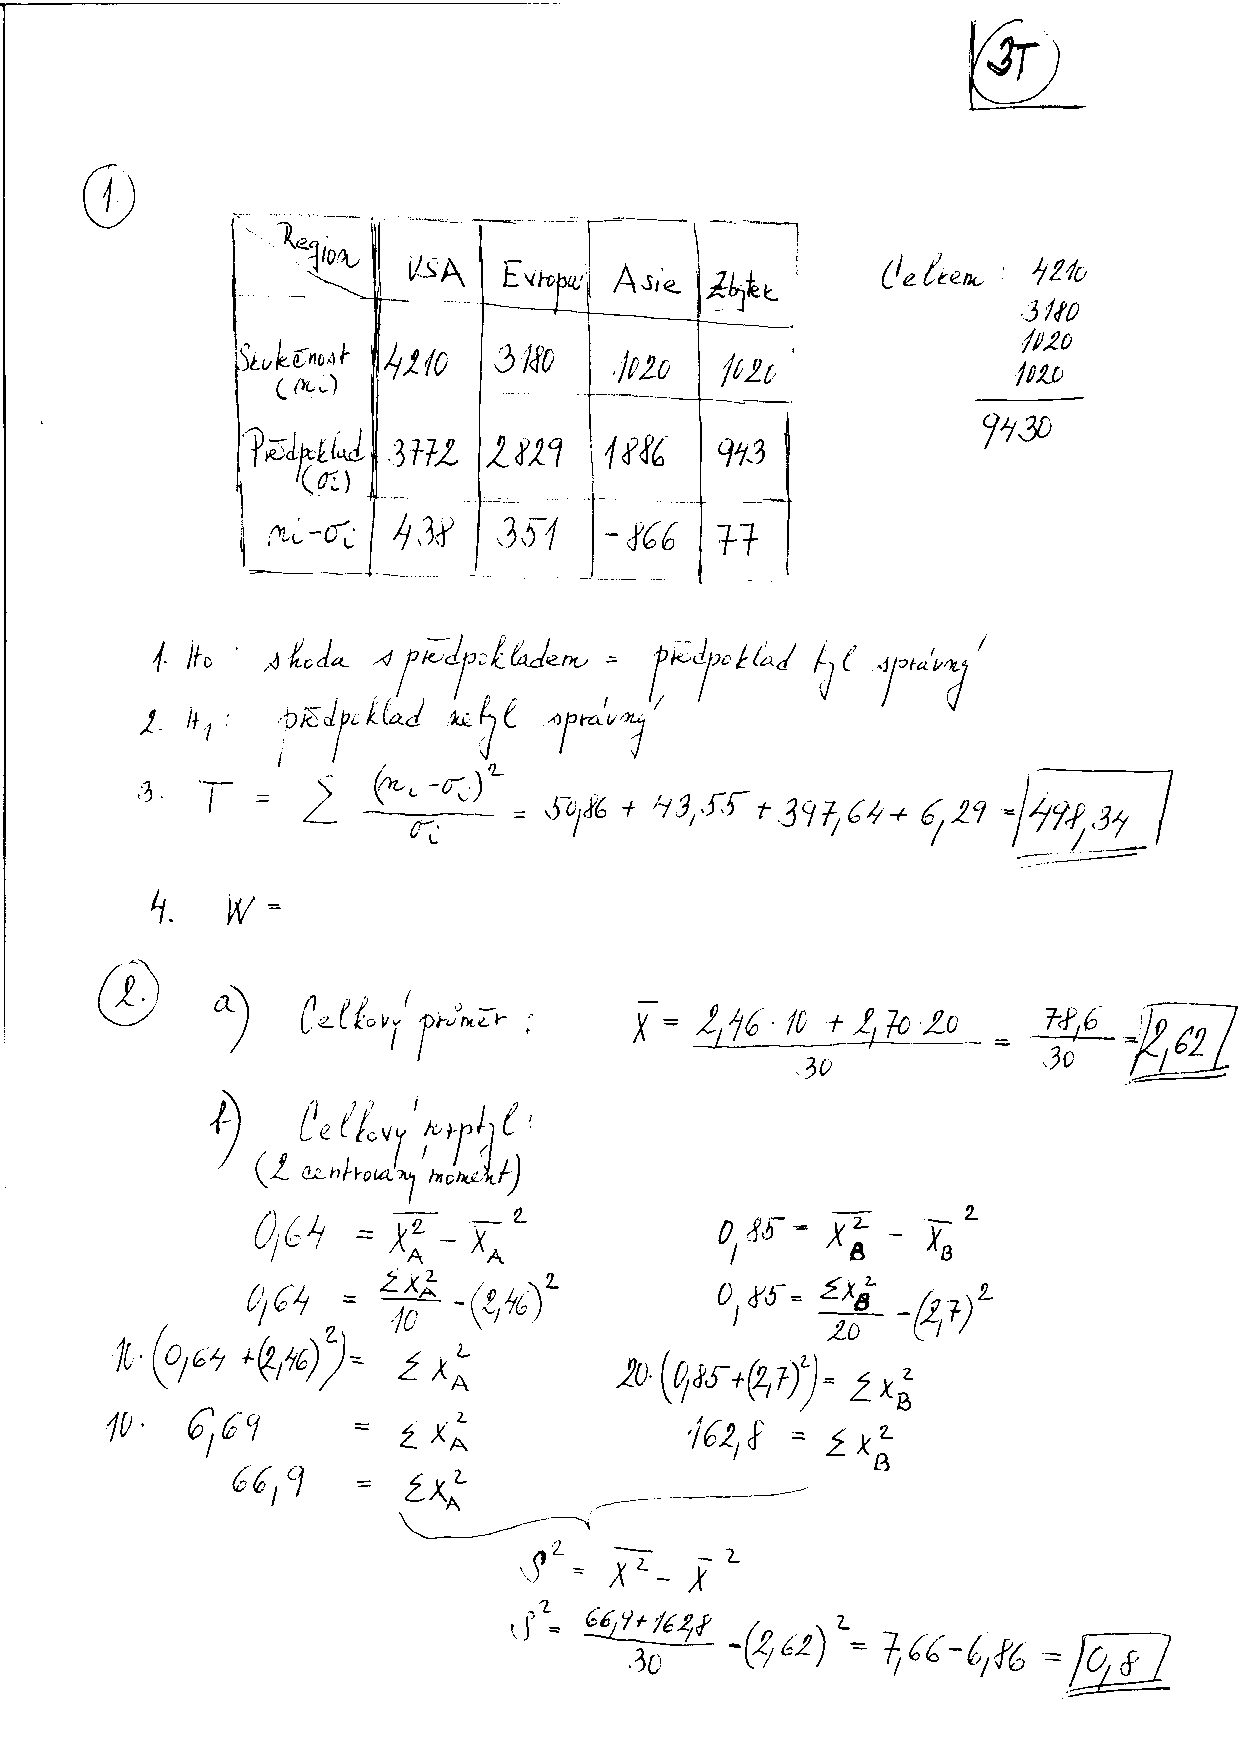 3T
1.
Region | USA | Evropa | Asie | Zbytek
Skutečnost (ni) | 4210 | 3180 | 1020 | 1020
Předpoklad (oi) | 3772 | 2829 | 1886 | 943
ni-oi | 438 | 351 | -866 | 77
Celkem: 4210
3180
1020
1020
9430
1. H0: shoda s předpokladem = předpoklad byl správný
2. H1: předpoklad nebyl správný
3. T = Σ (ni-oi)² / oi = 50,86 + 43,55 + 397,64 + 6,29 = 498,34
4. W =
2. a) Celkový průměr: x̄ = (2,46·10 + 2,70·20) / 30 = 78,6 / 30 = 2,62
b) Celkový rozptyl:
(2 centrovaný moment)
0,64 = \overline{X_A^2} - \overline{X}_A^2
0,85 = \overline{X_B^2} - \overline{X}_B^2
0,64 = ΣX_A² / 10 - (2,46)²
0,85 = ΣX_B² / 20 - (2,7)²
10·(0,64 + (2,46)²) = ΣX_A²
20·(0,85 + (2,7)²) = ΣX_B²
10· 6,69 = ΣX_A²
162,8 = ΣX_B²
66,9 = ΣX_A²
s² = \overline{X^2} - \overline{X}^2
s² = (66,9 + 162,8) / 30 - (2,62)² = 7,66 - 6,86 = 0,8